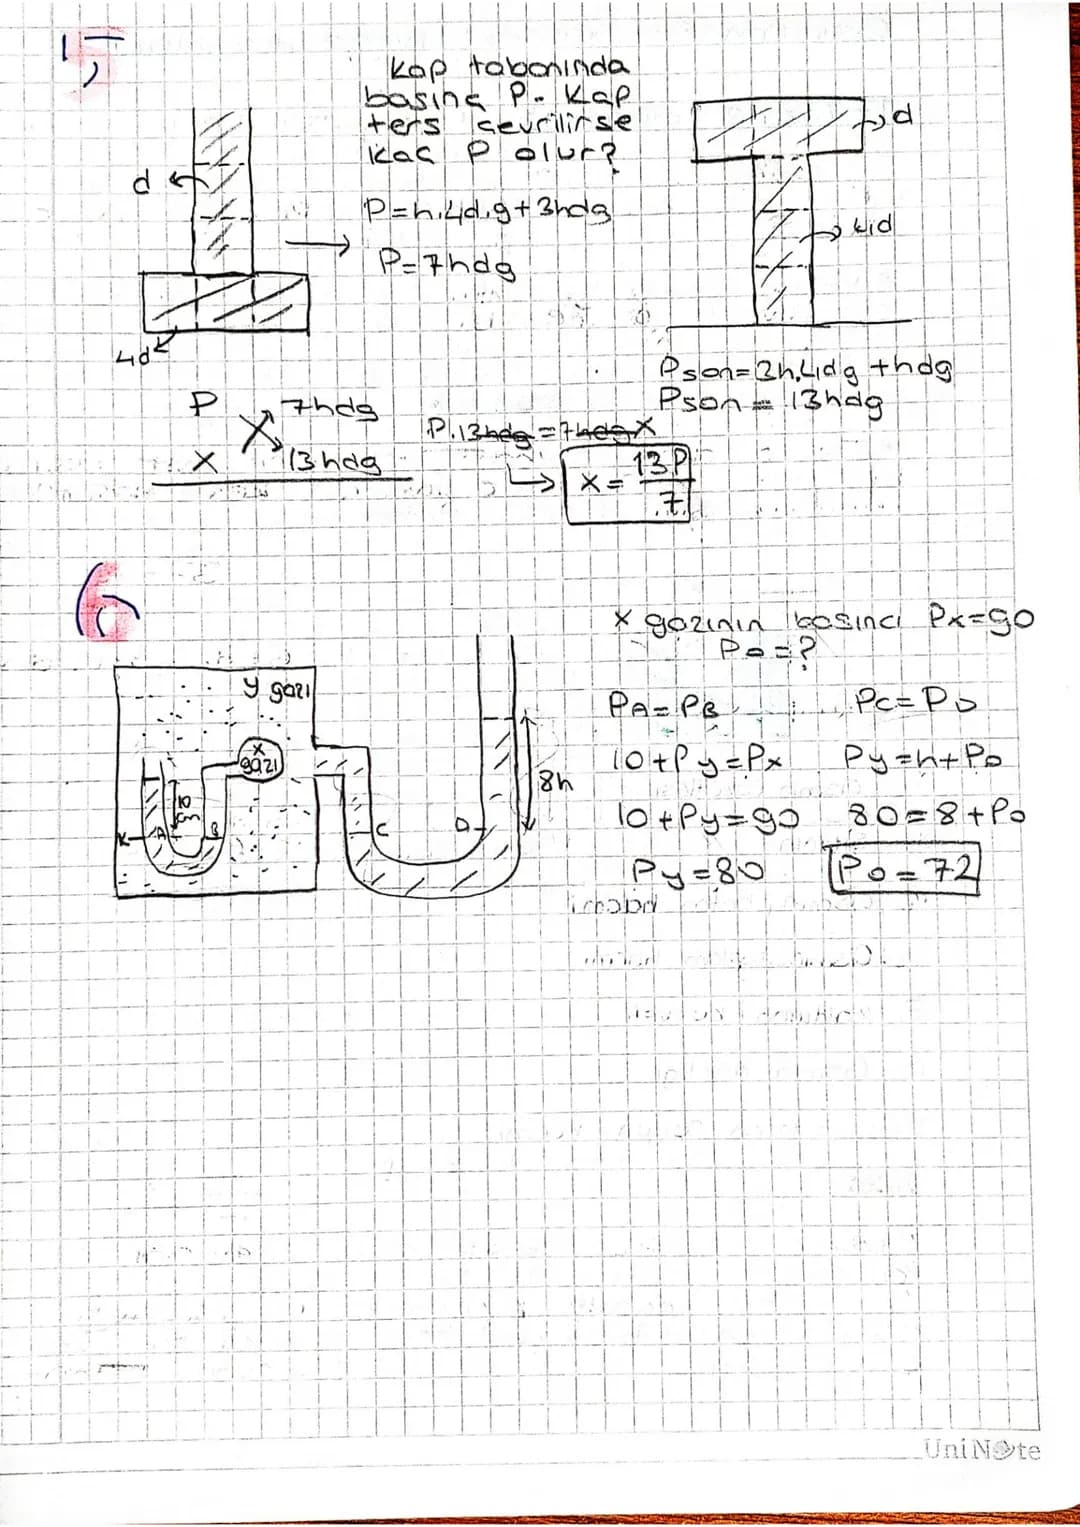 5)
Kap tabanında
basınç P. Kap
ters çevrilirse
kaç P olur?
d
P=h.4d.g+3hdg
P=7hdg
4d
d
4d
Pson=2h.4dg+hdg
Pson=13hdg
P 7hdg
X 13hdg
P.13hdg=7hdgX
X=13P/7
6
X gazının basıncı Px=90
Po=?
y gazı
x
gazı
10
cm
K
A
B
C
D
8h
PA=PB
10+Py=Px
10+Py=90
Py=80
PC=PD
Py=h+Po
80=8+Po
Po=72
UniNote